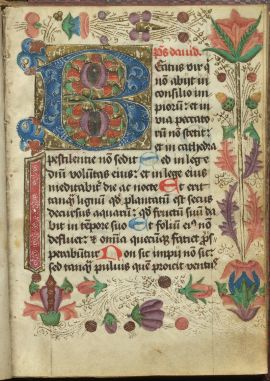 Ps dauid.
Beatus vir q
non abijt in
consilio im
pioru: et in
via peccato
ru no stetit:
et in cathedra
pestilentie non sedit Sed in lege
dni volutas eius: et in lege eius
meditabit die ac nocte Et erit
tanq lignu qd plantatu est secus
decursus aquaru: qd fructu suu da
bit in tempore suo Et foliu ei no
defluet: et omnia quecuq faciet ps
perabutur Non sic impii no sic:
sed tanq puluis que proicit ventus